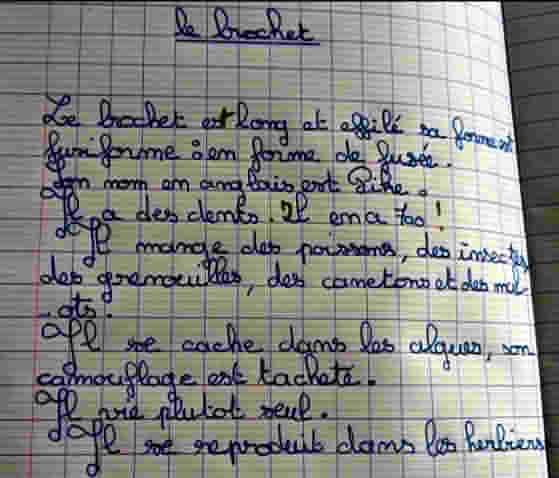 le brochet
Le brochet est long et effilé sa forme est
fusiforme : en forme de fusée.
Son nom en anglais est Pike.
Il a des dents. Il en a 700 !
Il mange des poissons, des insectes
des grenouilles, des canetons et des mul
-ots.
Il se cache dans les algues, son
camouflage est tacheté.
Il vie plutot seul.
Il se reproduit dans les herbiers